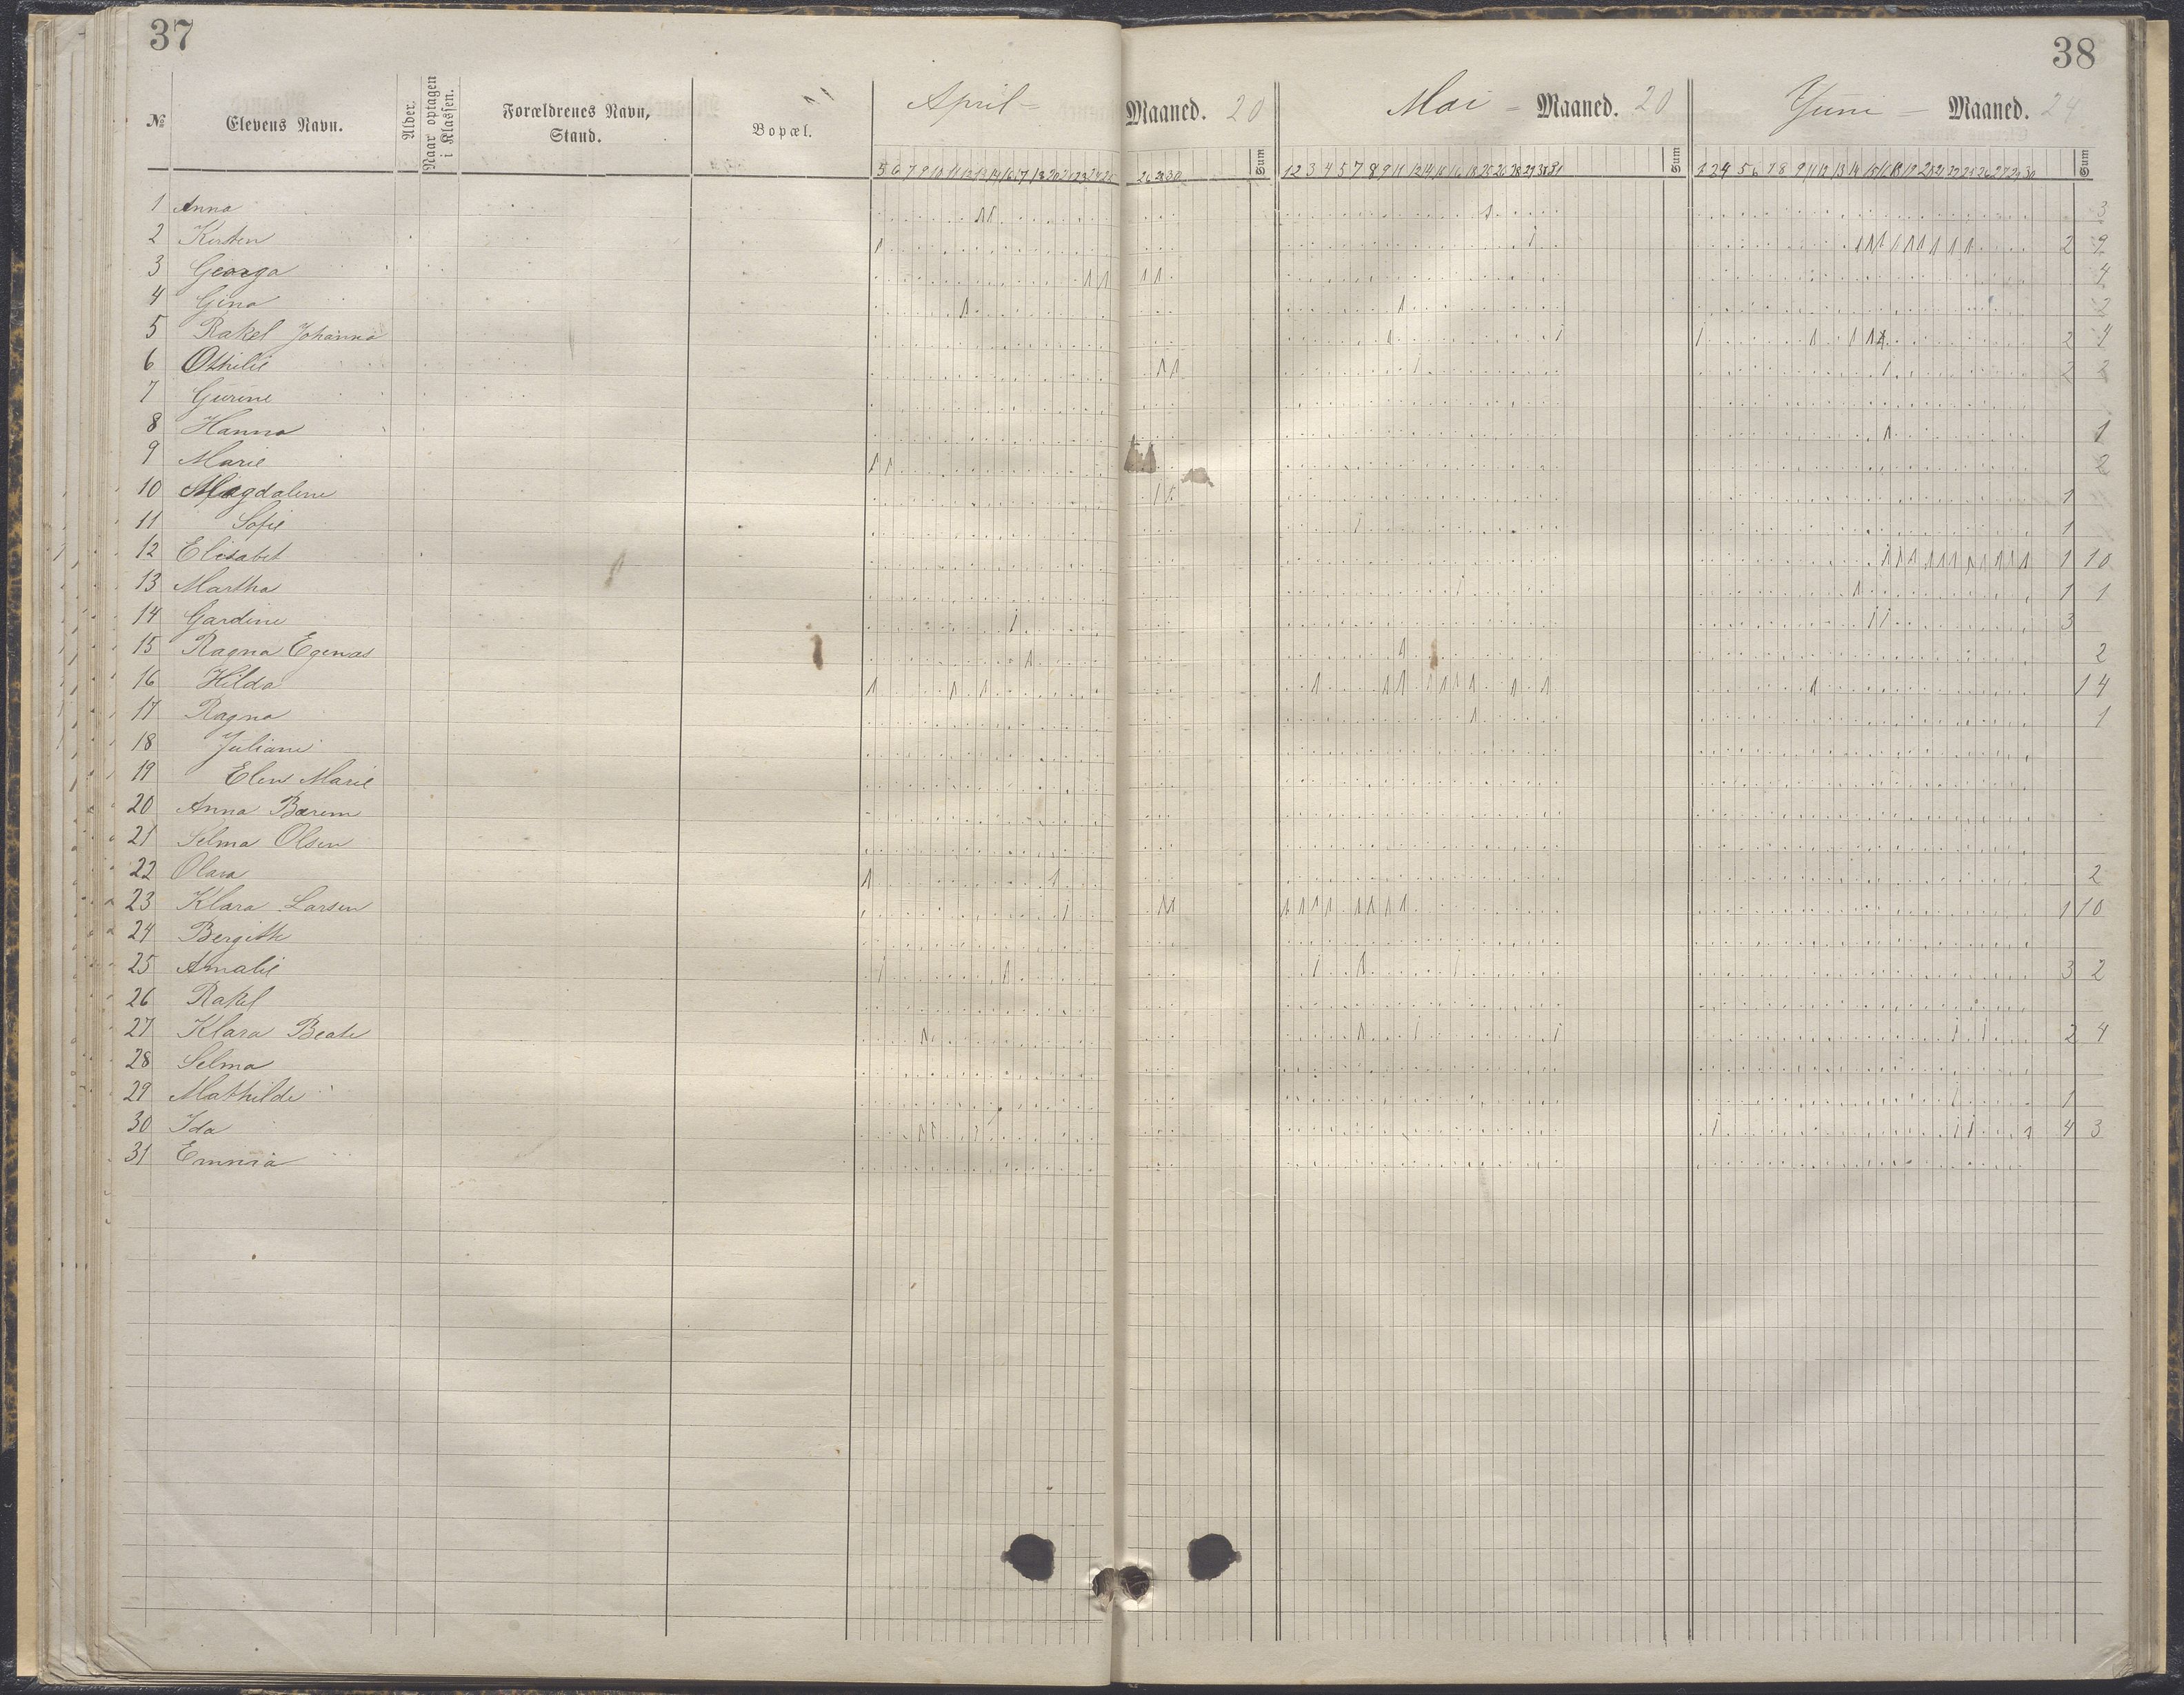 37
38
№
Elevens Navn.
Alder.
Naar optagen i Klassen.
Forældrenes Navn, Stand.
Bopæl.
April = Maaned. 20
Sum
Mai = Maaned. 20
Sum
Juni = Maaned. 24
Sum
1 Anna 3
2 Kirsten 2 9
3 Georga 4
4 Gina 2
5 Rakel Johanna 2 4
6 Othilie 2 2
7 Gurine
8 Hanna 1
9 Marie 2
10 Magdaline 1
11 Sofie 1
12 Elisabet 1 10
13 Martha 1 1
14 Gardine 3
15 Ragna Egenæs 2
16 Hilda 14
17 Ragna 1
18 Juliane
19 Elen Marie
20 Anna Bærem
21 Selma Olsen
22 Olava 2
23 Klara Larsen 1 10
24 Bergith
25 Amalie 3 2
26 Rakel
27 Klara Beate 2 4
28 Selma
29 Mathilde 1
30 Ida 4 3
31 Emma